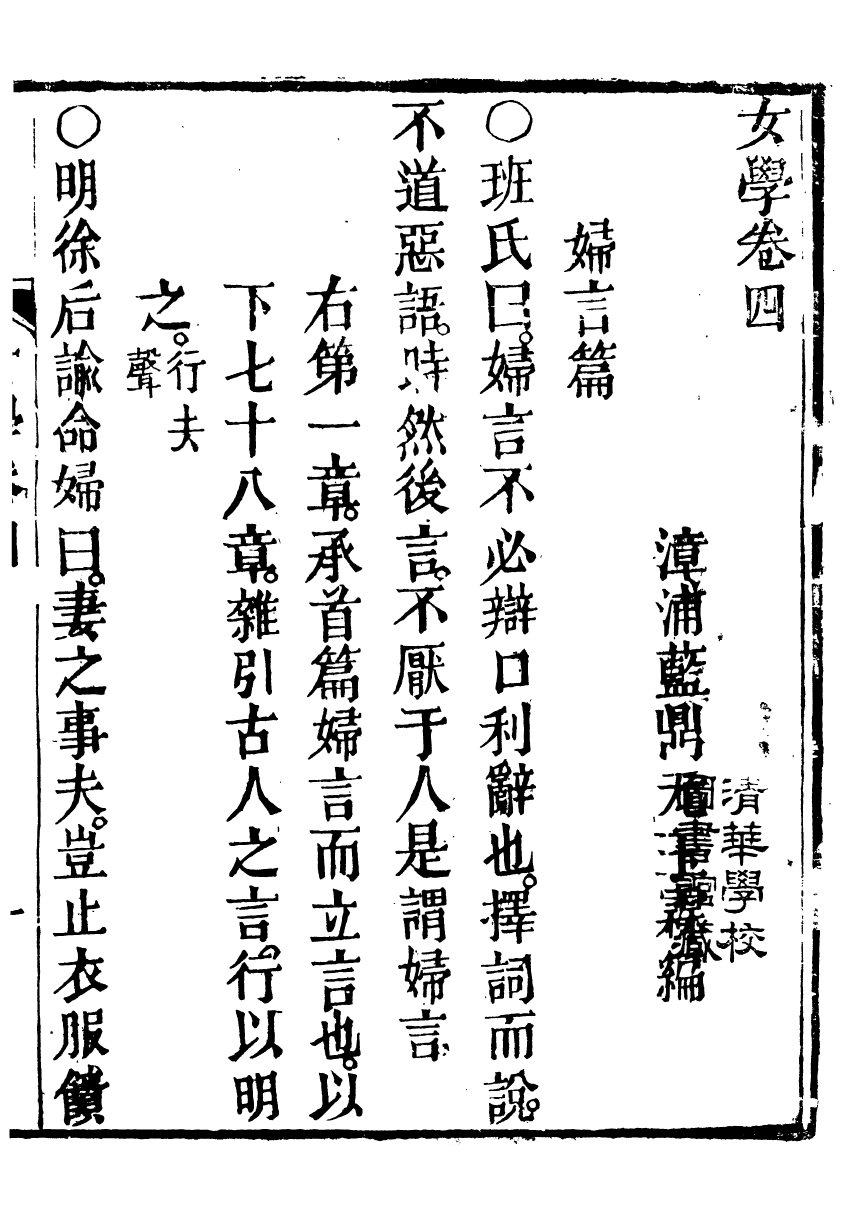 女學卷四
漳浦藍鼎元玉霖編
清華學校
圖書館藏
婦言篇
〇班氏曰。婦言不必辯口利辭也。擇詞而說。
不道惡語。時然後言。不厭于人是謂婦言
右第一章。承首篇婦言而立言也。以
下七十八章。雜引古人之言。行以明
之。行夫聲
〇明徐后諭命婦曰。妻之事夫。豈止衣服饋